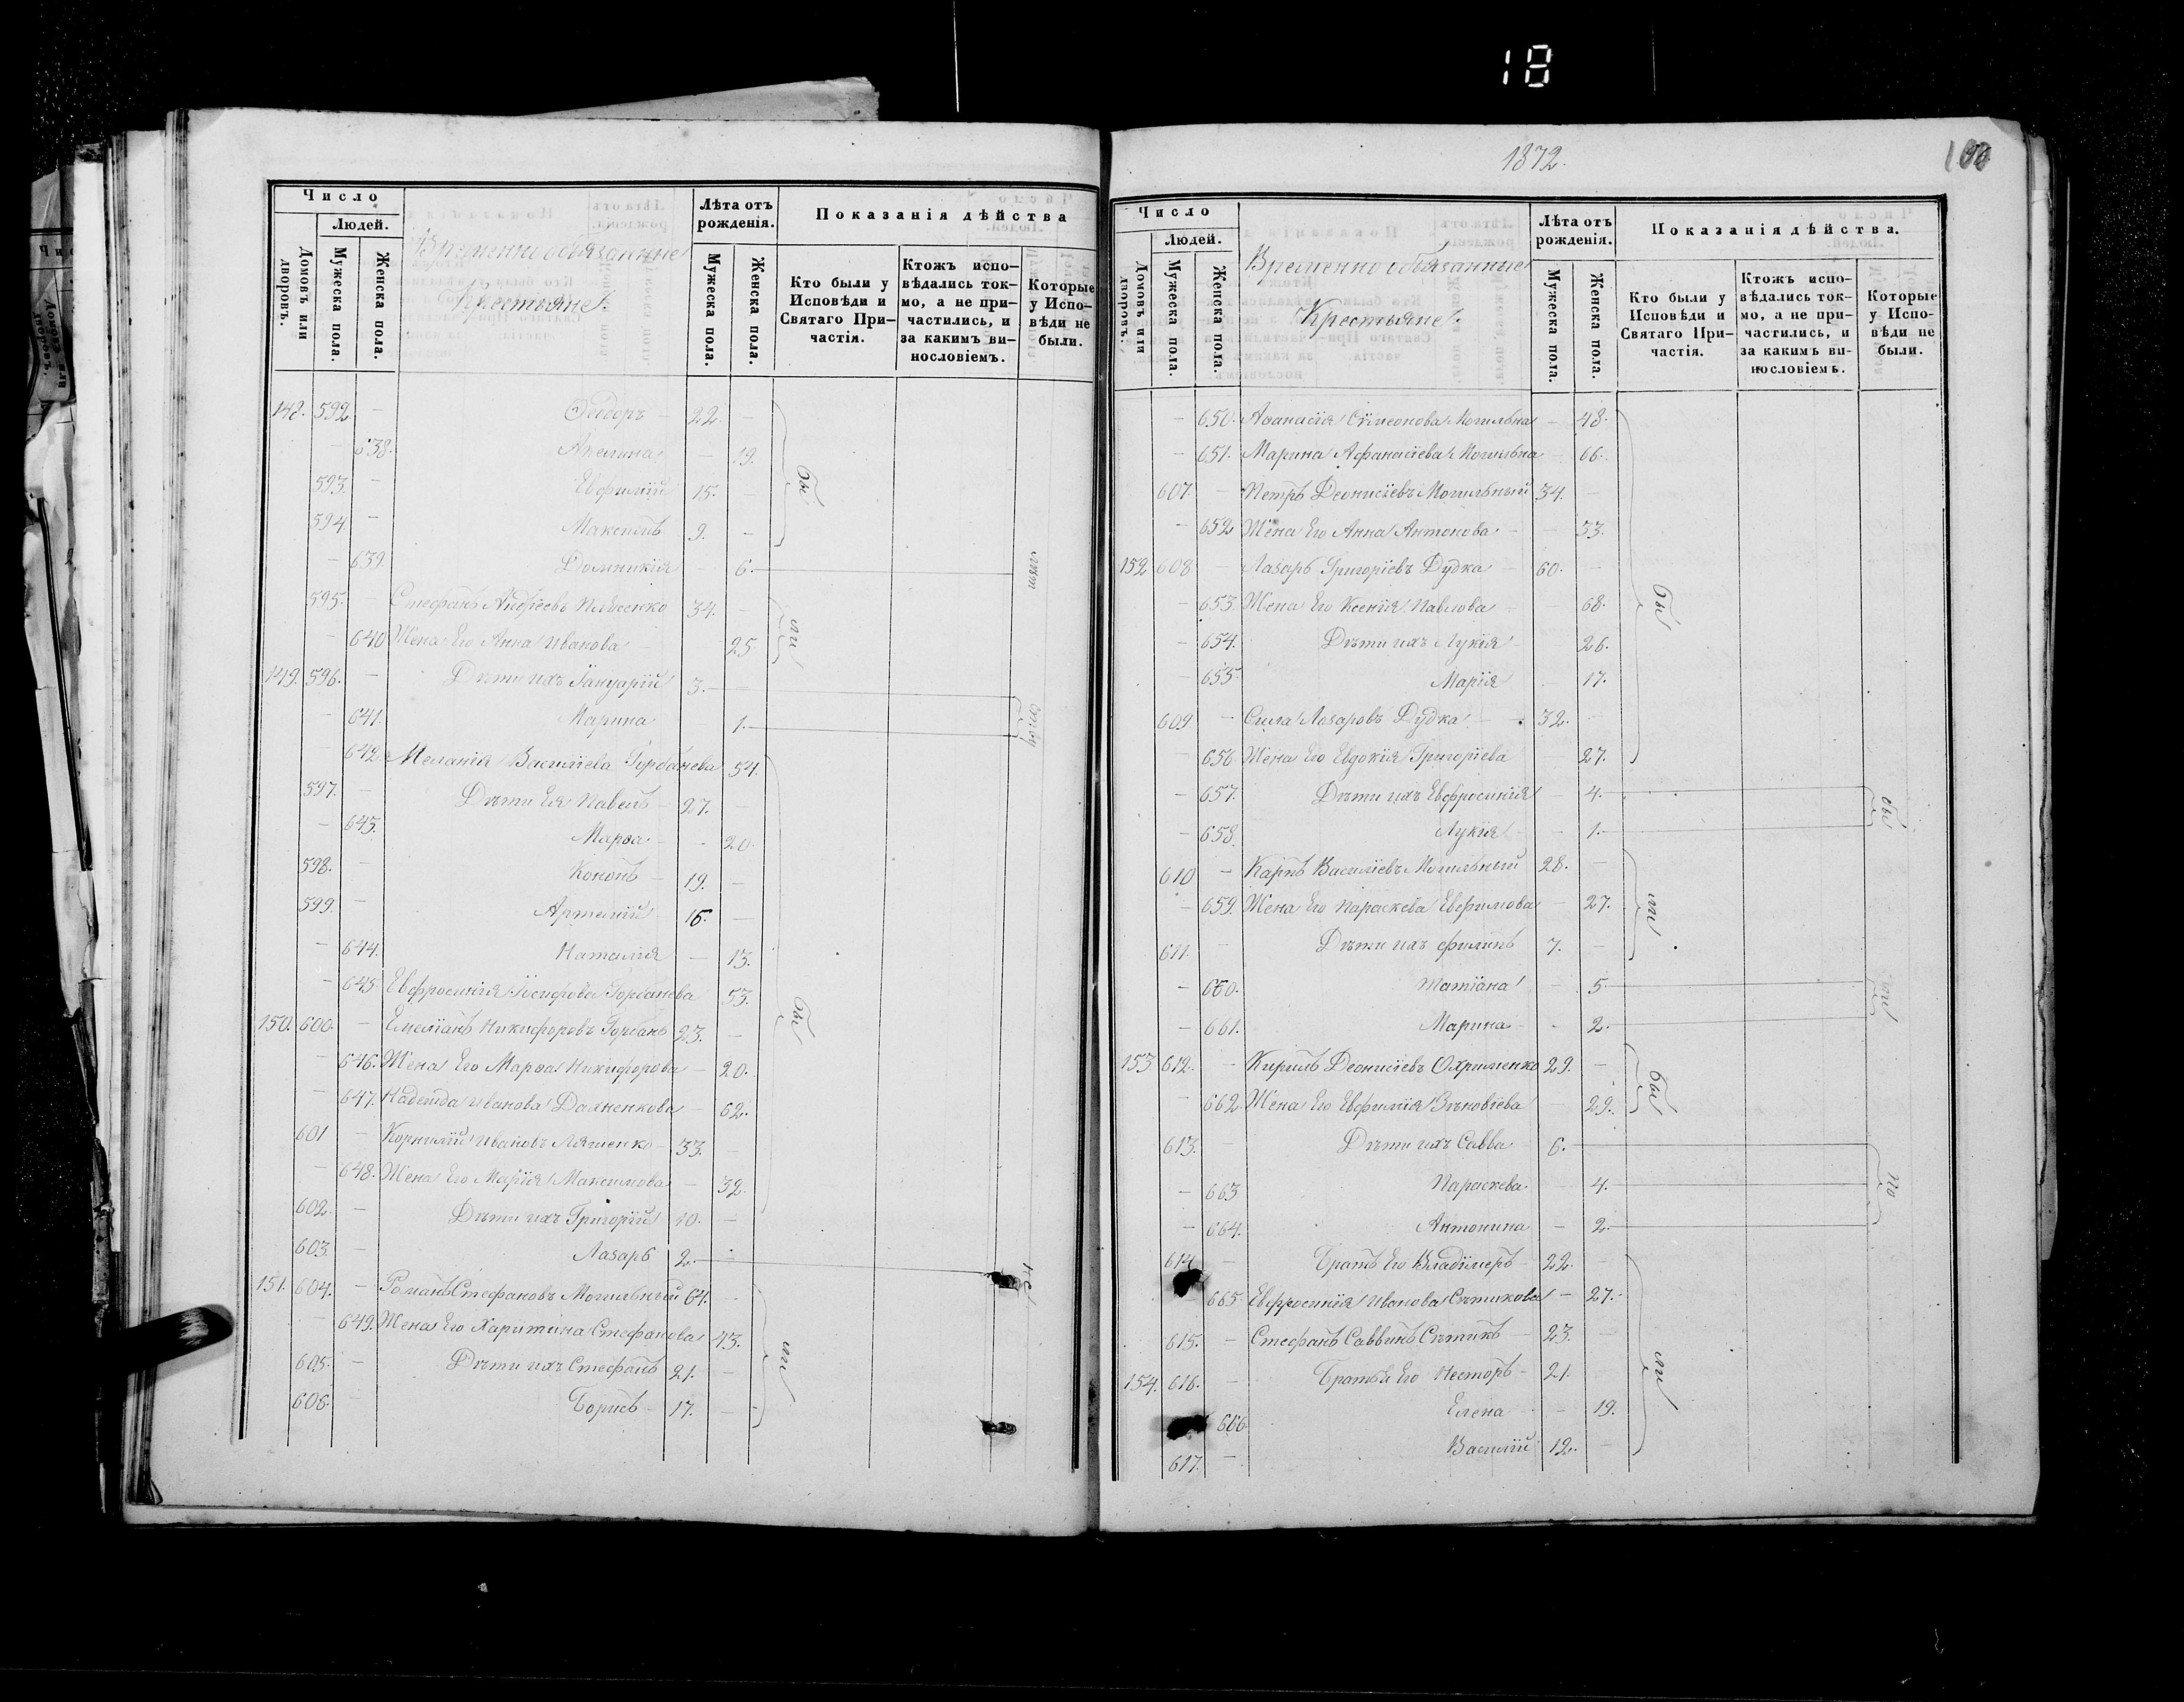 18
Число
Людей.
Домовъ или дворовъ.
Мужеска пола.
Женска пола.
Временно обязанные
Крестьяне.
Лѣта отъ рожденія.
Мужеска пола.
Женска пола.
Показанія дѣйства
Кто были у Исповѣди и Святаго Причастія.
Ктожъ исповѣдались токмо, а не причастились, и за какимъ винословіемъ.
Которые у Исповѣди не были.
148. 592 — Ѳеодоръ 22. —
— 638. — 19.
593. — Евфимій 15. —
594 — Максимъ 9. —
— 639. Домникія — 6.
595. — Стефанъ 34. —
— 640 Жена Его Анна Иванова — 25
149. 596. — Дѣти ихъ Іануарій 3.
— 641. Марина 1.
642. Меланія Василіева Горбанева 54.
597. — Дѣти Ея Павелъ — 27.
— 643. Марѳа — 20.
598. — Кононъ — 19. —
599. — Артемій 16. —
— 644. Наталія — 13.
— 645 Евфросинія Іосифова Горбанева 53.
150. 600. — Емеліанъ Никифоровъ Горбань 23. —
— 646. Жена Его Марѳа Никифорова — 20.
— 647. Надежда Иванова — 62.
601 — Корнилій Ивановъ Ляшенко — 33. —
— 648. Жена Его Марія Максимова — 32.
602. — Дѣти ихъ Григорій 10. —
603. — Лазарь 2. —
151. 604. — Романъ Стефановъ Могильный 64. —
— 649. Жена Его Харитина Стефанова 43.
605. — Дѣти ихъ Стефанъ 21. —
606. — Борисъ — 17. —
бы
ли
бы
ли
1872.
100
Число
Людей.
Домовъ или дворовъ.
Мужеска пола.
Женска пола.
Временно обязанные
Крестьяне.
Лѣта отъ рожденія.
Мужеска пола.
Женска пола.
Показанія дѣйства.
Кто были у Исповѣди и Святаго Причастія.
Ктожъ исповѣдались токмо, а не причастились, и за какимъ винословіемъ.
Которые у Исповѣди не были.
— 650. Аѳанасія Симеонова Могильна — 48.
— 651. Марина Афанасіева Могильна — 66.
607. — Петръ Деонисіевъ Могильный 34. —
— 652 Жена Его Анна Антонова — 33.
152 608 — Лазарь Григоріевъ Дудка — 60. —
— 653 Жена Его Ксенія Павлова — 68.
— 654. Дѣти ихъ Лукія — 26.
— 655. Марія — 17.
609. — Сила Лазаровъ Дудка — 32. —
— 656 Жена Его Евдокія Григоріева — 27.
— 657. Дѣти ихъ Евфросинія — 4.
— 658. Лукія — 1.
610 — Карпъ Василіевъ Могильный 28. —
— 659. Жена Его Параскева Евфимова — 27.
611. — Дѣти ихъ Филипъ 7. —
— 660. Татіана — 5
— 661. Марина — 2.
153 612. — Кирилъ Деонисіевъ Охрименко 29. —
— 662 Жена Его Евфимія Зѣновіева — 29.
613. — Дѣти ихъ Савва 6.
— 663 Параскева — 4.
— 664. Антонина — 2.
614 — Братъ Его Владимеръ 22. —
665 Евфросинія Иванова Сѣтикова — 27.
615. — Стефанъ Саввинъ Сѣтикъ 23. —
154. 616. — Братья Его Несторъ — 21. —
666 Елена — 19.
617. — Василій 12. —
бы
ли
бы
ли